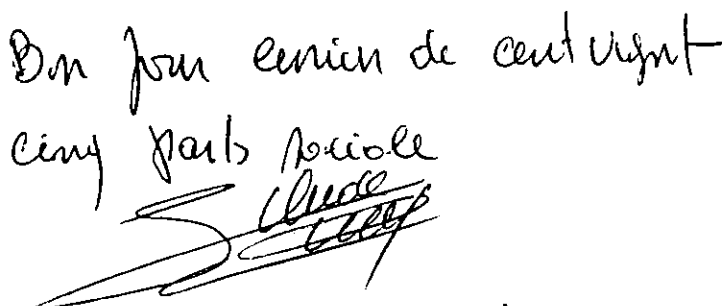 Bon pour cession de cent vignt
cinq parts sociale